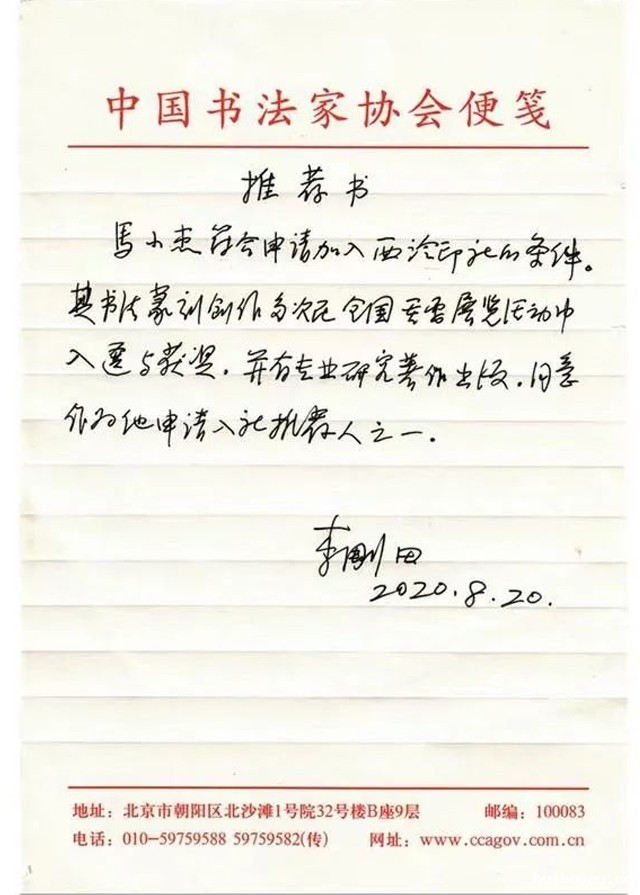 中国书法家协会便笺
推荐书
马小杰符合申请加入西泠印社的条件。
其书法篆刻创作多次在全国重要展览活动中
入选与获奖，并有专业研究著作出版，同意
作为他申请入社推荐人之一。
李刚田
2020.8.20.
地址：北京市朝阳区北沙滩1号院32号楼B座9层 邮编：100083
电话：010-59759588 59759582(传) 网址：www.ccagov.com.cn